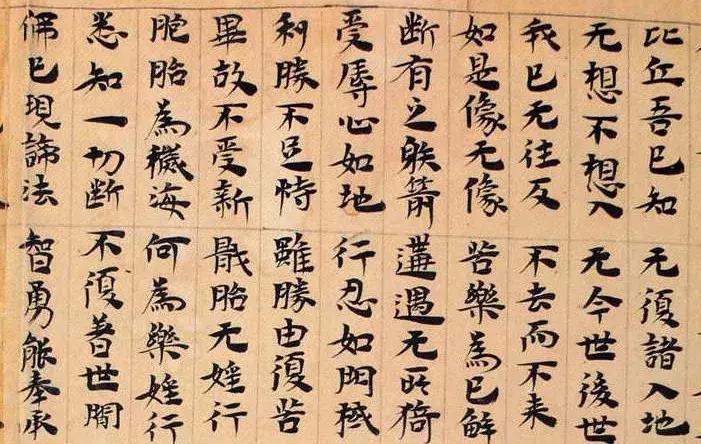 比丘吾已知 无復諸入地
无想不想入 无今世後世
我已无往反 不去而不来
如是像无像 苦樂為已解
断有之䠶箭 遘遇无所猗
受辱心如地 行忍如門棫
利勝不足恃 雖勝由復苦
畢故不受新 胎无婬行
胞胎為穢海 何為樂婬行
悉知一切断 不復著世間
佛已現諦法 智勇能奉承